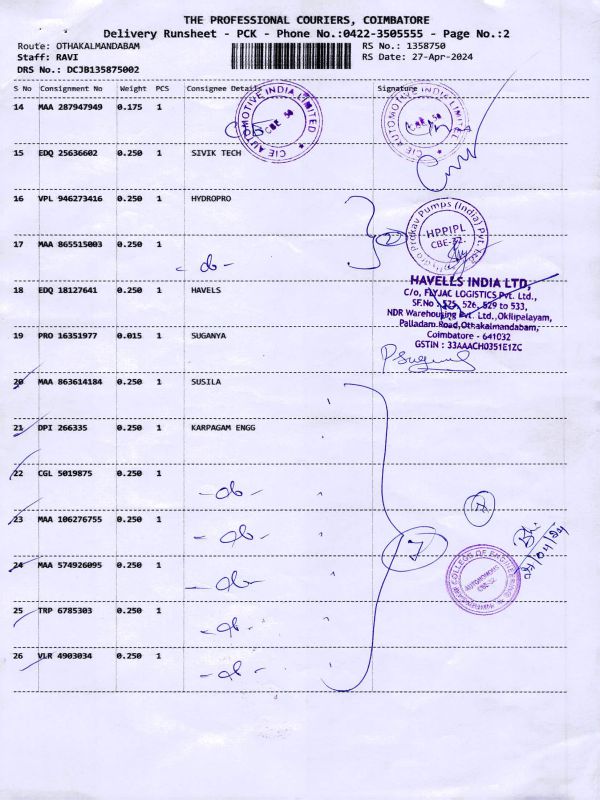 THE PROFESSIONAL COURIERS, COIMBATORE
Delivery Runsheet - PCK - Phone No.:0422-3505555 - Page No.:2
Route: OTHAKALMANDABAM
RS No.: 1358750
Staff: RAVI
RS Date: 27-Apr-2024
DRS No.: DCJB135875002
S No Consignment No Weight PCS Consignee Details Signature
14 MAA 287947949 0.175 1
CIE AUTOMOTIVE INDIA LIMITED
CBE-50
CIE AUTOMOTIVE INDIA LIMITED
CBE-50
15 EDQ 25636602 0.250 1 SIVIK TECH
16 VPL 946273416 0.250 1 HYDROPRO
Hydro Prokav Pumps (India) Pvt. Ltd.
HPPIPL
CBE-32.
17 MAA 865515003 0.250 1
- do -
18 EDQ 18127641 0.250 1 HAVELS
HAVELLS INDIA LTD,
C/o, FLYJAC LOGISTICS Pvt. Ltd.,
SF.No - 525, 526, 529 to 533,
NDR Warehousing Pvt. Ltd., Okilipalayam,
Palladam Road, Othakalmandabam,
Coimbatore - 641032
GSTIN : 33AAACH0351E1ZC
19 PRO 16351977 0.015 1 SUGANYA
20 MAA 863614184 0.250 1 SUSILA
21 DPI 266335 0.250 1 KARPAGAM ENGG
22 CGL 5019875 0.250 1
- do -
23 MAA 106276755 0.250 1
- do -
7
24 MAA 574926095 0.250 1
- do -
COLLEGE OF ENGINEERING
AUTONOMOUS
CBE-32
25 TRP 6785303 0.250 1
- do -
26 VLR 4903034 0.250 1
- do -